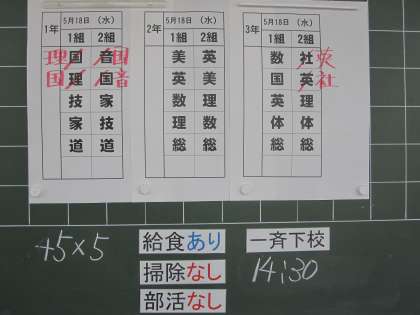 1年 5月18日 (水)
1組 2組
理 国 音 国
国 理 国 音
技 家
家 技
道 道
2年 5月18日 (水)
1組 2組
美 英
英 美
数 理
理 数
総 総
3年 5月18日 (水)
1組 2組
数 社 英
国 英 社
英 理
体 体
総 総
45×5
給食あり
掃除なし
部活なし
一斉下校
14:30